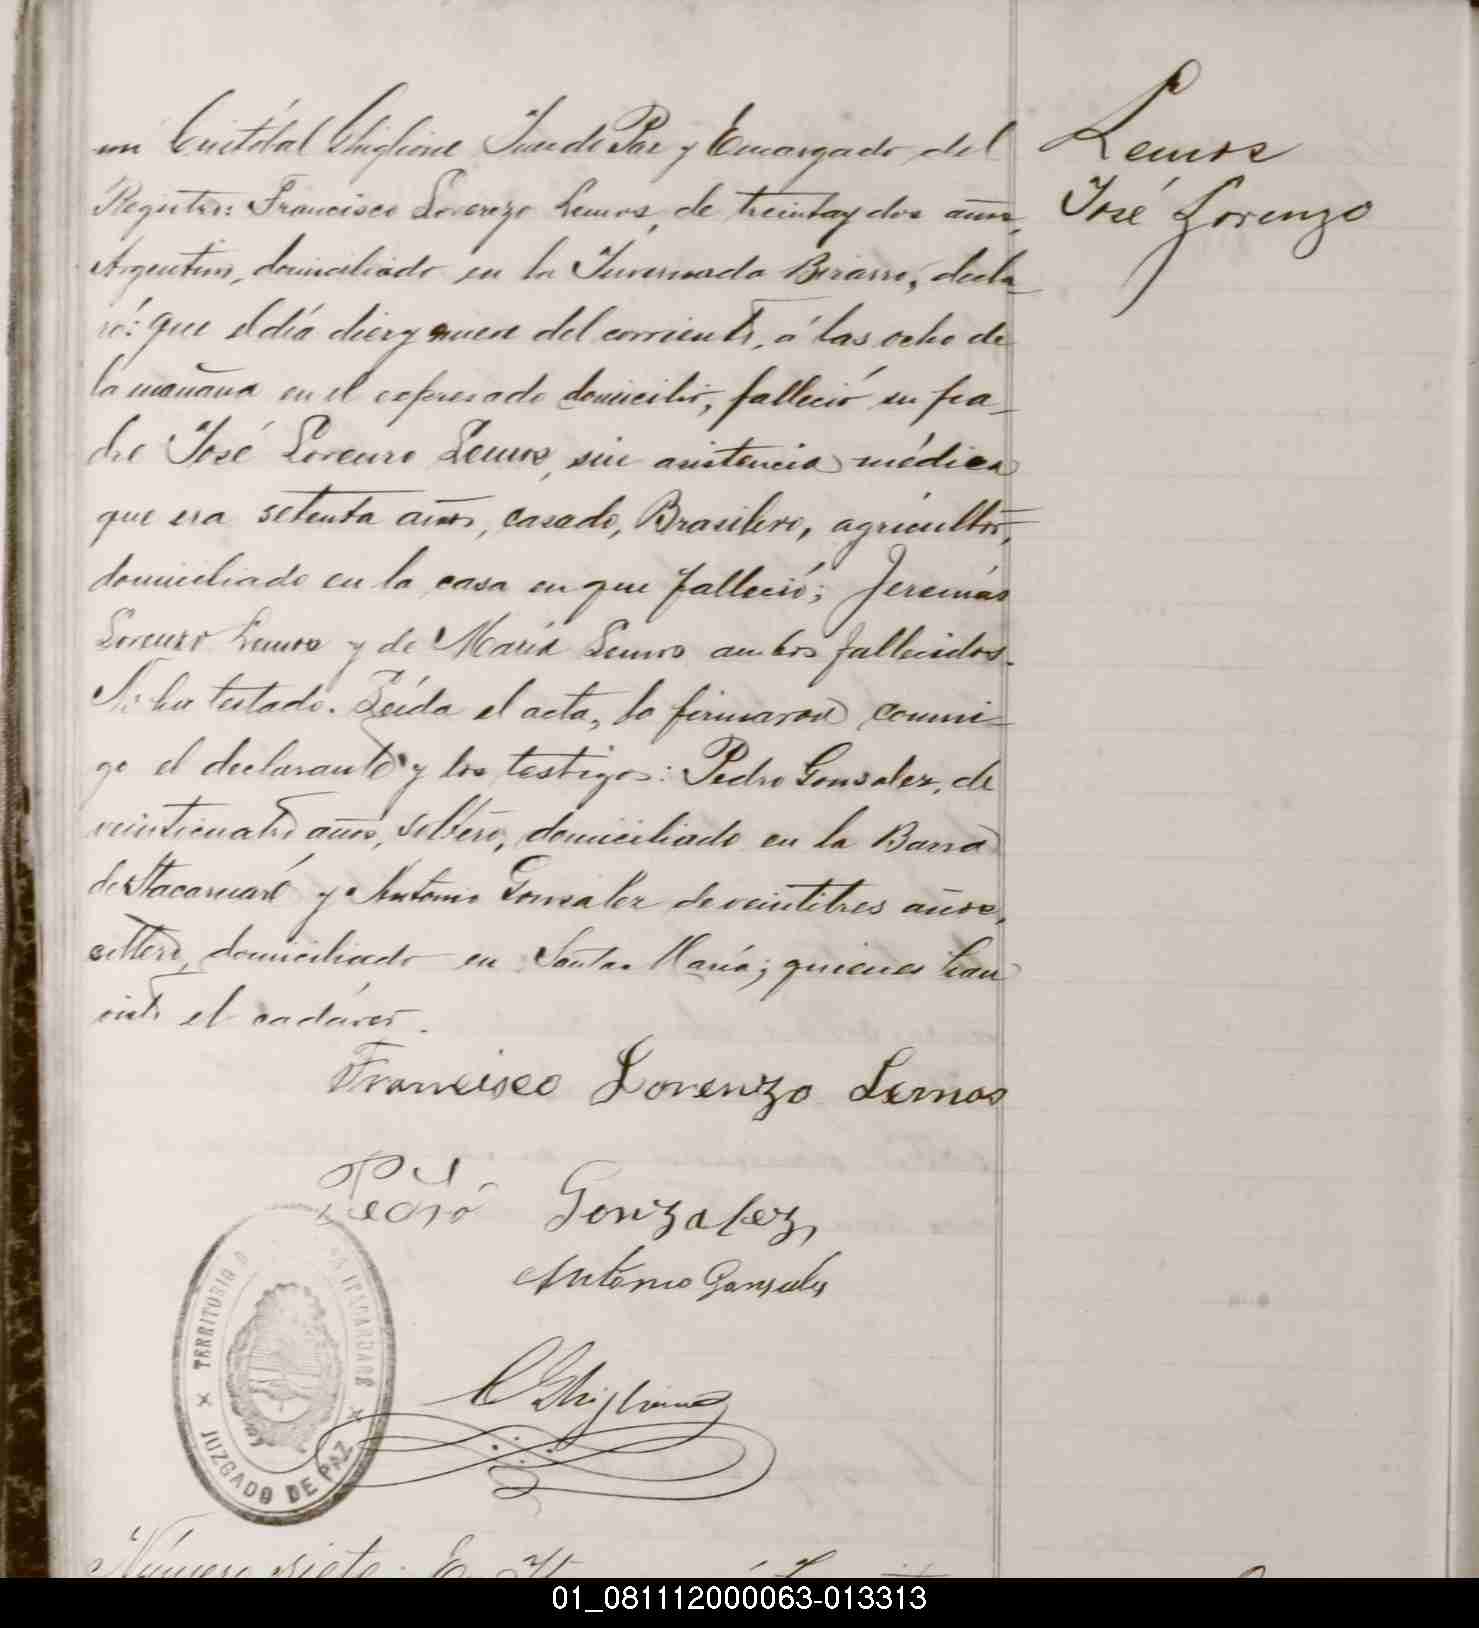 mi Cristóbal Ghiglione Juez de Paz y Encargado del
Registro: Francisco Lorenzo Lemos, de treinta y dos años,
Argentino, domiciliado en la Invernada Bizarro, decla_
ró: que el día diez y nueve del corriente, á las ocho de
la mañana en el expresado domicilio, falleció su pa_
dre José Lorenzo Lemos, sin asistencia médica
que era setenta años, casado, Brasilero, agricultor,
domiciliado en la casa en que falleció; Jeremías
Lorenzo Lemos y de María Lemos ambos fallecidos.
No ha testado. Leída el acta, la firmaron conmi_
go el declarante y los testigos: Pedro Gonsalez, de
veinticuatro años, soltero, domiciliado en la Barra
de Itacaruaré y Antonio Gonsalez de veintitres años,
soltero, domiciliado en Santa María; quienes han
visto el cadáver.
Francisco Lorenzo Lemos
Pedro Gonzalez,
Antonio Gonsales
C Ghiglione
Lemos
José Lorenzo
TERRITORIO D
ITACARUARE
JUZGADO DE PAZ
Número siete.
01_081112000063-013313